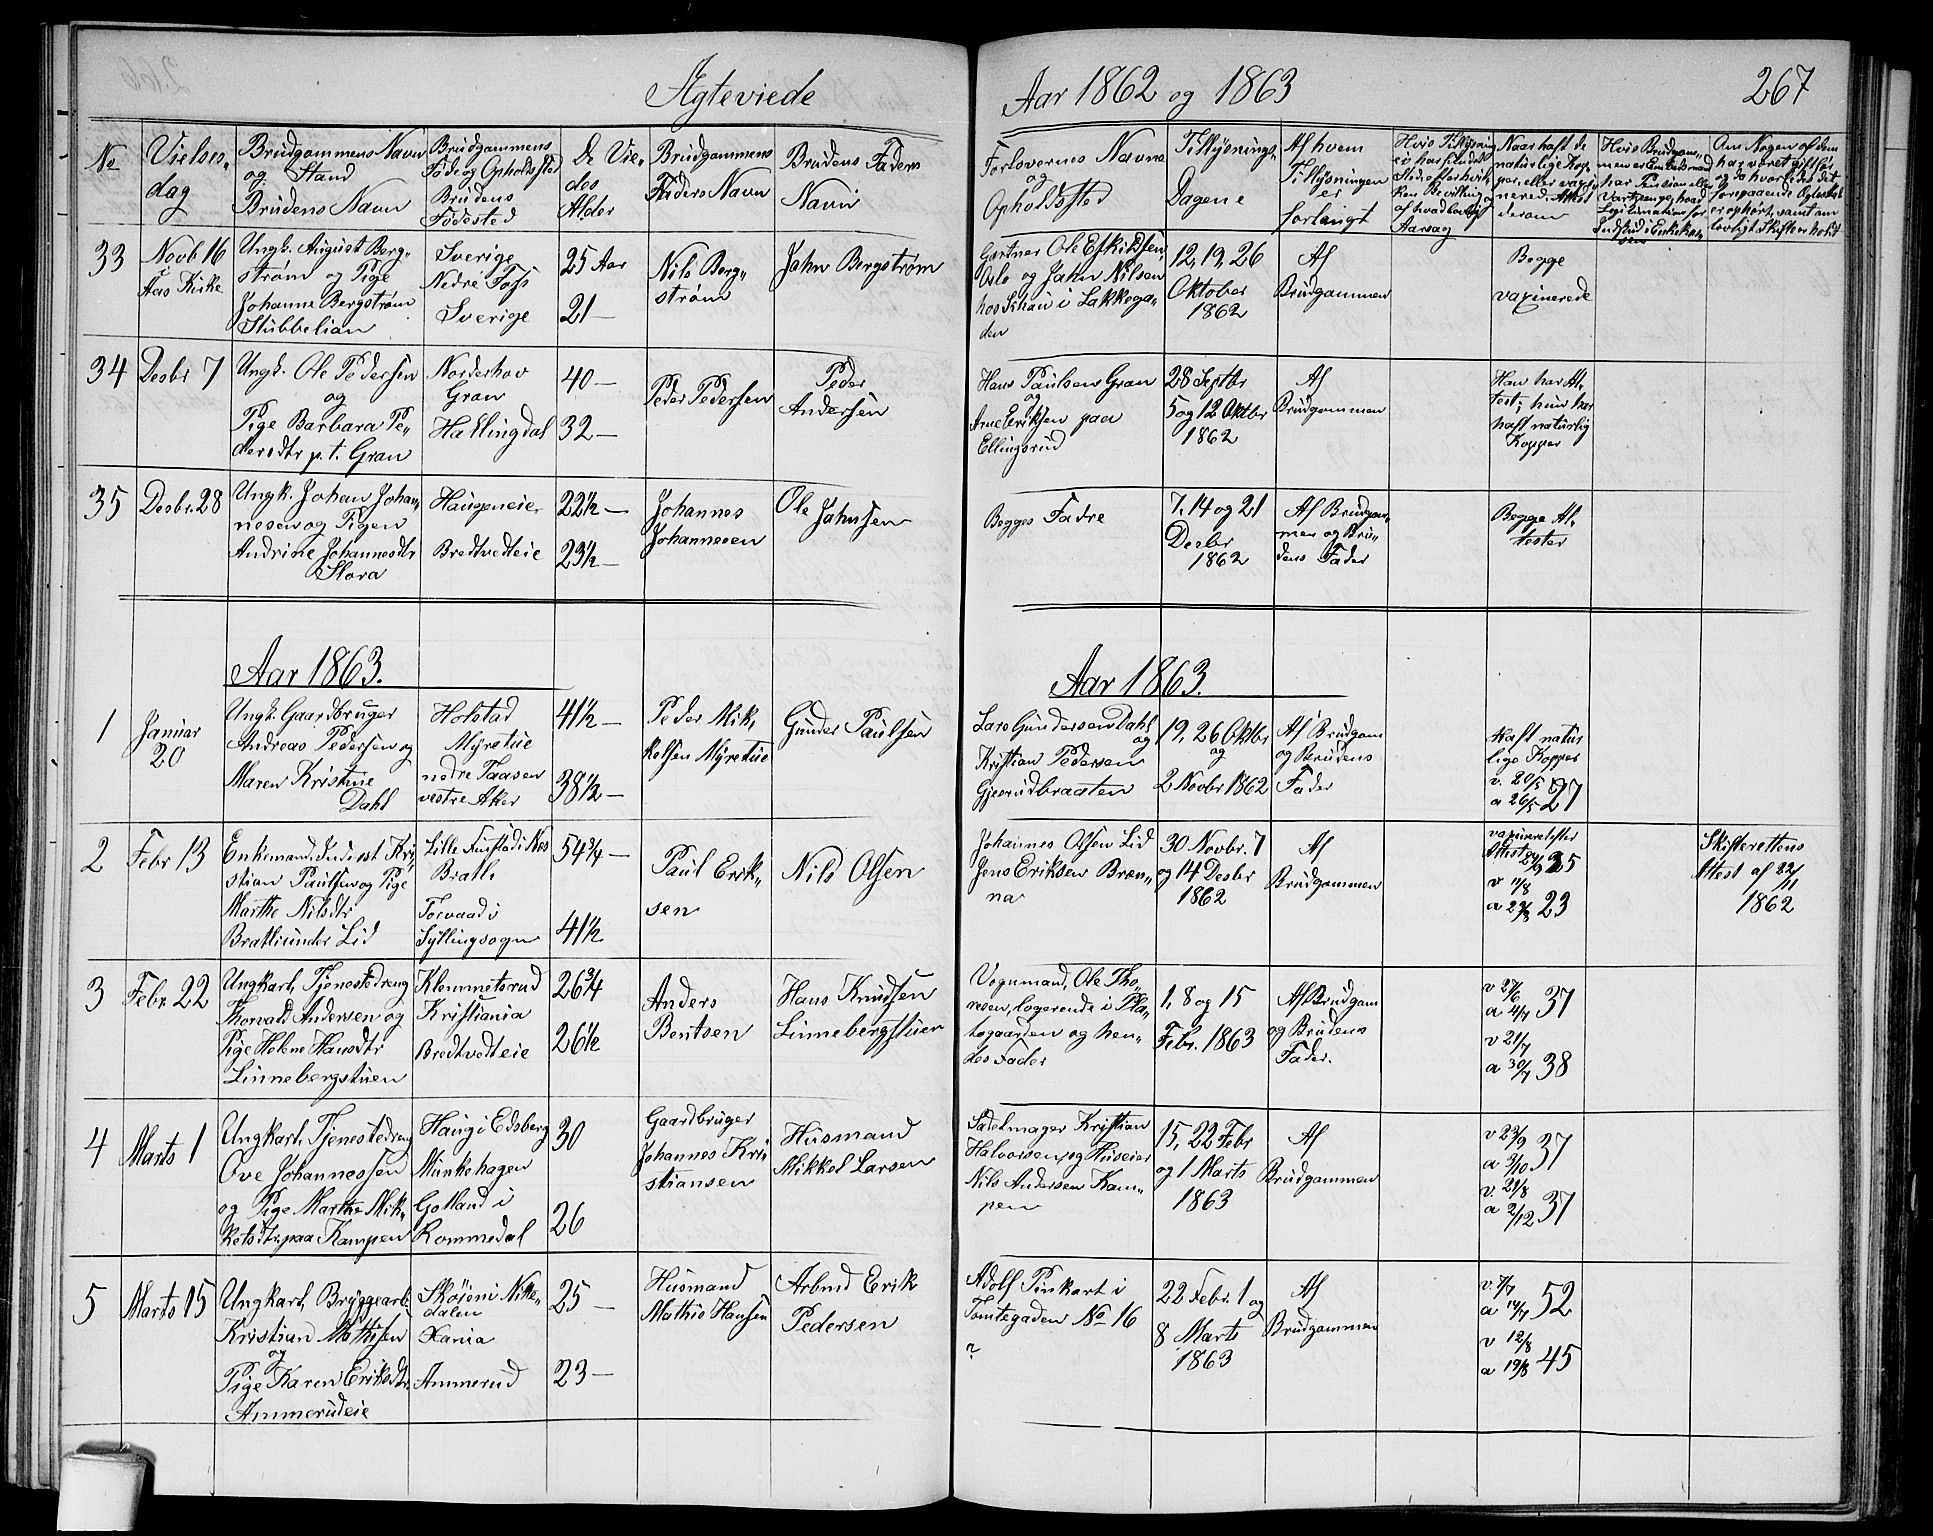 Ægteviede
Aar 1862 og 1863
267
No
Vielses-
dag
Brudgammens Navn
og Stand
Brudens Navn
Brudgammens
Føde og Opholdssted
Brudens
Fødested
De Vie-
des
Alder
Brudgammens
Faders Navn
Brudens Faders
Navn
Forlovernes Navne
og
Opholdssted
Tillysnings-
Dagene
Af hvem
Tillysningen
er
forlangt
Hvis Tillysning
ei har fundet
Sted, efter hvil-
ken Bevilling og
af hvad lovlig
Aarsag
Naar haft de
naturlige Kop-
per, eller vaxi-
nered. Attest
derom
Hvis Brudgam-
men er Embedsmand
har Pension eller
Vartpenge, hvad
Legitimation for
Indskud i Enkekas-
sen
Om Nogen af dem
har været gift før
og da hvorledes det
foregaaende Ægteskab
er ophørt, samt om
lovligt Skifte er holdt
33
Novb. 16
Aas Kirke
Ungk. August Berg-
strøm og Pige
Johanne Bergstrøm
Stubbelian
Sverige
Nedre Foss
Sverige
25 Aar
21 —
Nils Berg-
strøm
Jahn Bergstrøm
Gartner Ole Eskildsen
Oslo og Jahn Nilsen
hos Schau i Lakkega-
den
12, 19, 26
Oktober
1862
Af
Brudgammen
Begge
vaxinerede
34
Desbr 7
Ungk. Ole Pedersen
og
Pige Barbara Pe-
dersdtr p. t. Gran
Norderhov
Gran
Hallingdal
40 —
32 —
Peder Pedersen
Peder
Andersen
Hans Paulsen Gran
og
Arne Eriksen paa
Ellingsrud
28 Septbr
5 og 12 Oktbr
1862
Af
Brudgammen
Han har At-
test; hun har
haft naturlig
Kopper
35
Desbr. 28
Ungk. Johan Johan-
nesen og Pigen
Andrine Johannesdtr
Flora
Haugeneie
Bredtvedteie
22½ —
23½ —
Johannes
Johannesen
Ole Jahnsen
Begges Fadre
7, 14 og 21
Desbr
1862
Af Brudgam-
men og Bru-
dens Fader
Begge At-
tester
Aar 1863.
Aar 1863.
1
Januar
20
Ungk. Gaardbruger
Andreas Pedersen og
Maren Kristine
Dahl
Holstad
Myretue
nedre Taasen
vestre Aker
41½ —
38½ —
Peder Mik-
kelsen Myretue
Gunder Paulsen
Lars Gundersen Dahl
og
Kristian Pedersen
Gjeerudbraaten
19, 26 Oktbr
og
2 Novbr 1862
Af Brudgam
og Brudens
Fader
Haft natur
lige Kopper
v. 20/5
a 26/5 27
2
Febr 13
Enkemand, Inderst Kri-
stian Paulsen og Pige
Marthe Nilsdtr
Bratli under Lid
Lille Finstad i Nes
Bratli
Torvaad i
Syllingsogn
54¾ —
41½
Paul Erik-
sen
Nils Olsen
Johannes Olsen Lid
Jens Eriksen Bræn-
na
30 Novbr. 7
og 14 Desbr
1862
Af
Brudgammen
vaxineret efter
Attest 24/9 25
v 11/8
a 23
Skifterettens
Attest af 22/11
1862
3
Febr 22
Ungkarl, Tjenestedreng
Thorvald Andersen og
Pige Helene Hansdtr
Linnebergstuen
Klemmetsrud
Kristiania
Bredtvedteie
26¾
26½
Anders
Bentsen
Hans Knudsen
Linnebergstuen
Vognmand, Ole Tho-
resen, logerende i Pla-
togaarden og hen-
des Fader
1, 8 og 15
Febr. 1863
Af Brudgam
og Brudens
Fader.
v 27/6
a 4/7 37
v 21/7
a 30/7 38
4
Marts 1
Ungkarl, Tjenestedreng
Ove Johannessen
og Pige Marthe Mik-
kelsdtr. paa Kampen
Haug i Edsberg
Munkehagen
Golland i
Rommedal
30
26
Gaardbruger
Johannes Kri-
stiansen
Husmand
Mikkel Larsen
Sadelmager Kristian
Halvorsen, og Huseier
Nils Andersen Kam-
pen
15, 22 Febr
og 1 Marts
1863
Af
Brudgammen
v 23/9
a 3/10 37
v. 21/8
a 2/12 37
5
Marts 15
Ungkarl, Bryggearb.
Kristian Mathisen
og
Pige Karen Eriksdtr.
Ammerudeie
Skøien i Nitte-
dalen
Xania
Ammerud
25 —
23 —
Husmand
Mathis Hansen
Arbmd Erik
Pedersen
Adolf Pinkart i
Tomtegaden No 16
?
22 Febr. 1 og
8 Marts
1863
Af
Brudgammen
v. 7/7
a 14/7 52
v 12/8
a 19/8 45